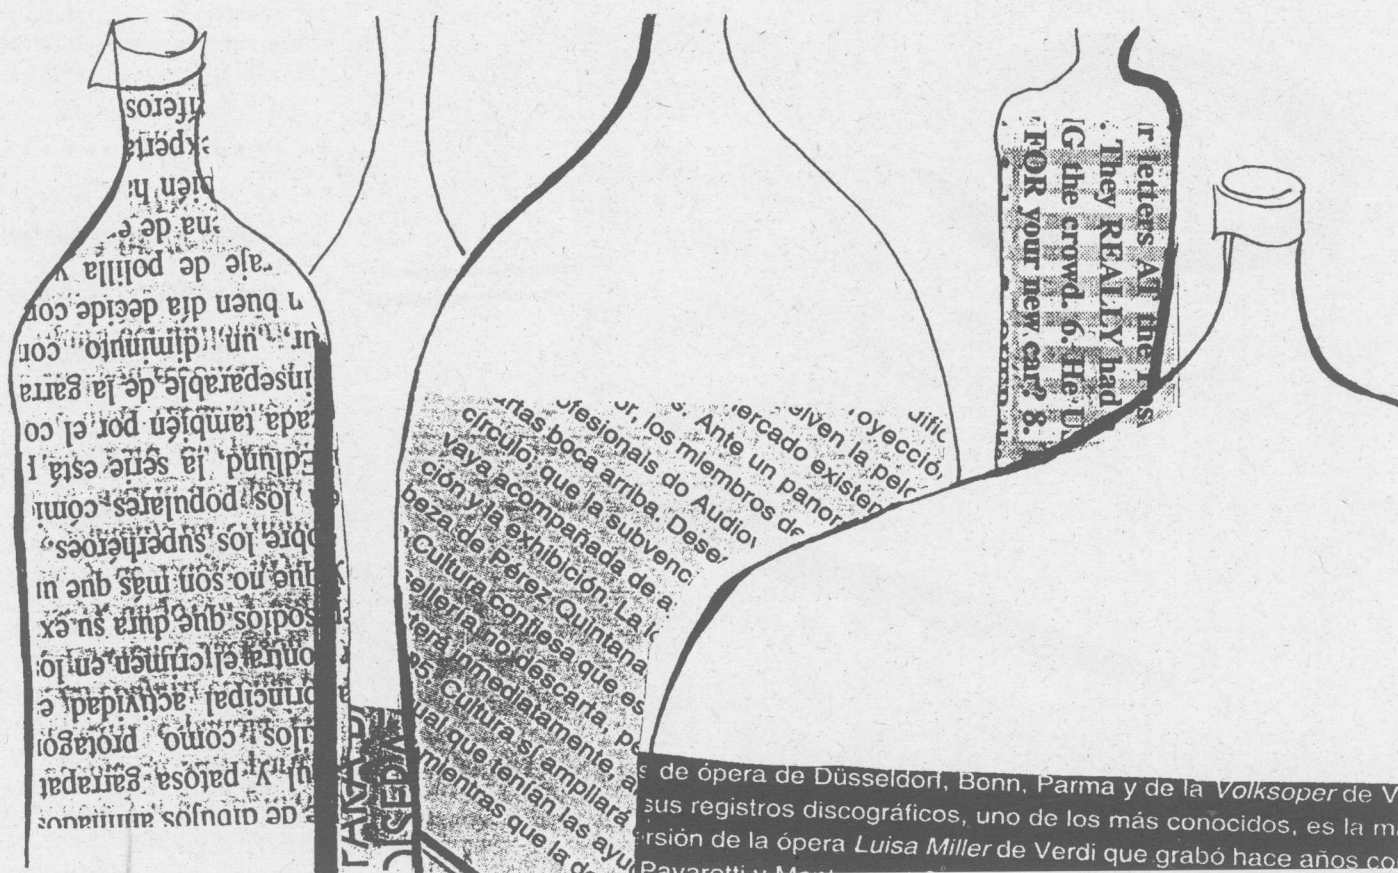 de dibujos animados
ul y patosa garrapat
ulos, como protagon
principal actividad e
contra el crimen en los
episodios que dura su ex
y que no son más que un
obre los superhéroes.
en los populares cómi
Edlund, la serie está p
ada también por el co
inseparable, de la garra
ur, un diminuto con
n buen día decide con
raje de polilla y
na de e
bién ha
xperta
íferos
dific
oyección,
elven la pelo
mercado existen
s. Ante un panor
or, los miembros de
ofesionais do Audiov
artas boca arriba. Dese
círculo, que la subvenci
vaya acompañada de a
ción y la exhibición. La
beza de Pérez Quintana
Cultura confiesa que es
sellería no descarta, po
terá inmediatamente, a
95. Cultura sí ampliará
ual que tenían las ayu
mientras que la de
r letters At the
. They REALLY had
G the crowd. 6. He U
FOR your new car? 8.
s de ópera de Düsseldorf, Bonn, Parma y de la Volksoper de V
sus registros discográficos, uno de los más conocidos, es la m
rsión de la ópera Luisa Miller de Verdi que grabó hace años co
Pavarotti y